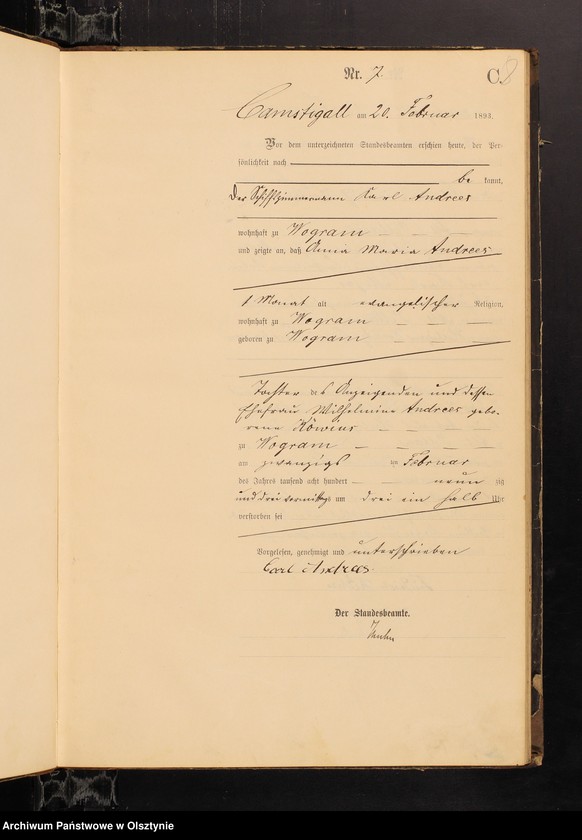 Nr. 7.
C.
Camstigall am 20. Februar 1893.
Vor dem unterzeichneten Standesbeamten erschien heute, der Per-
sönlichkeit nach
be kannt,
der Schiffszimmermann Karl Andrees
wohnhaft zu Wogram
und zeigte an, daß Anna Maria Andrees
1 Monat alt evangelischer Religion,
wohnhaft zu Wogram
geboren zu Wogram
Tochter des Anzeigenden und dessen
Ehefrau Wilhelmine Andrees gebo-
rene
zu Wogram
am zwanzigs ten Februar
des Jahres tausend acht hundert neun zig
und drei vormittags um drei ein halb Uhr
verstorben sei
Vorgelesen, genehmigt und unterschrieben
Carl Andrees.
Der Standesbeamte.
Archiwum Państwowe w Olsztynie